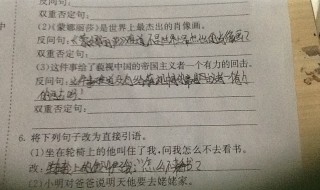 反问句:
双重否定句:
(2)《蒙娜丽莎》是世界上最杰出的肖像画。
反问句:《蒙娜丽莎》难道不是世界上最杰出的肖像画吗?
双重否定句:
(3)这件事给了藐视中国的帝国主义者一个有力的回击。
反问句:
双重否定句:
6. 将下列句子改为直接引语。
(1)坐在轮椅上的他叫住了我,问我怎么不去看书。
改:
(2)小明对爸爸说明天他要去姥姥家。